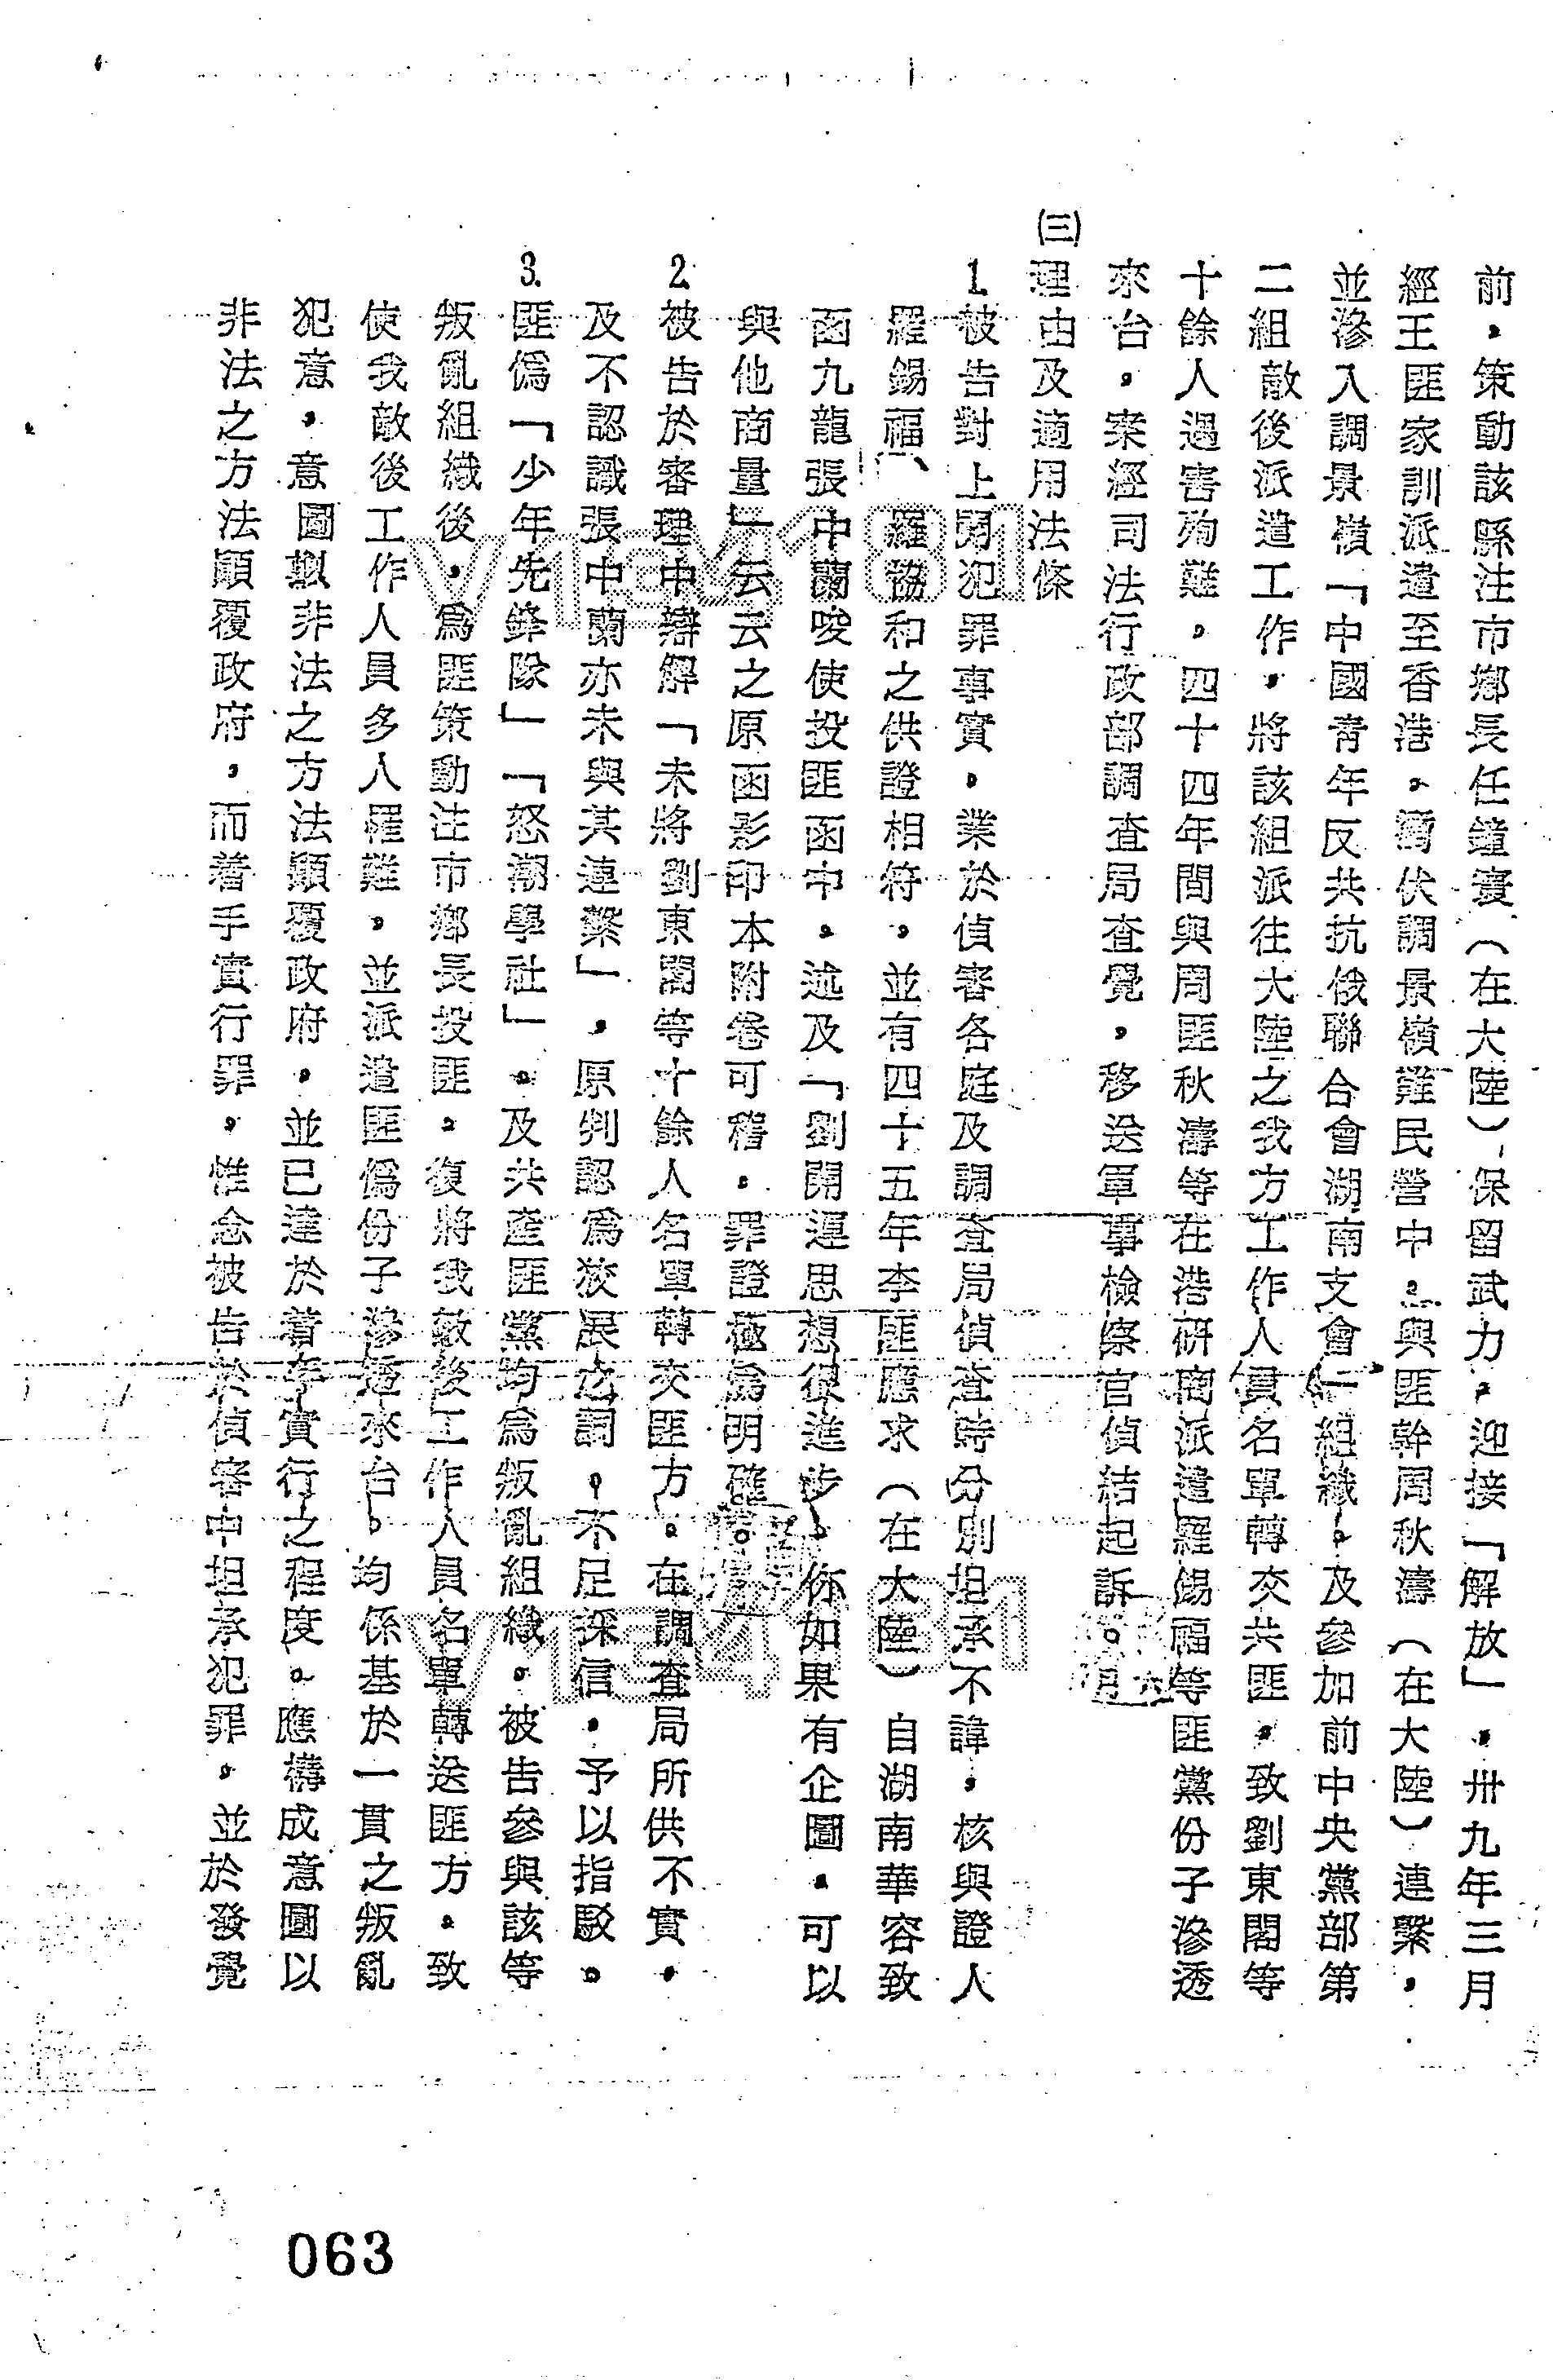 前，策動該縣注市鄉長任鐘寰（在大陸）保留武力，迎接「解放」，卅九年三月
經王匪家訓派遣至香港，潛伏調景嶺難民營中，與匪幹周秋濤（在大陸）連繫，
並滲入調景嶺「中國青年反共抗俄聯合會湖南支會」組織。及參加前中央黨部第
二組敵後派遣工作，將該組派往大陸之我方工作人員名單轉交共匪，致劉東閣等
十餘人遇害殉難，四十四年間與周匪秋濤等在港研商派遣羅錫福等匪黨份子滲透
來台，案經司法行政部調查局查覺，移送軍事檢察官偵結起訴。
㈢理由及適用法條
1.被告對上開犯罪事實，業於偵審各庭及調查局偵查時分別坦承不諱，核與證人
羅錫福、羅協和之供證相符，並有四十五年李匪應求（在大陸）自湖南華容致
函九龍張中蘭唆使投匪函中，述及「劉開運思想很進步，你如果有企圖，可以
與他商量」云云之原函影印本附卷可稽，罪證極為明確。
2.被告於審理中辯解「未將劉東閣等十餘人名單轉交匪方。在調查局所供不實，
及不認識張中蘭亦未與其連繫」，原判認為狡展之詞，不足採信，予以指駁。
3.匪偽「少年先鋒隊」「怒潮學社」。及共產匪黨均為叛亂組織，被告參與該等
叛亂組織後，為匪策動注市鄉長投匪，復將我敵後工作人員名單轉送匪方，致
使我敵後工作人員多人罹難，並派遣匪偽份子滲透來台。均係基於一貫之叛亂
犯意，意圖以非法之方法顛覆政府，並已達於着手實行之程度。應構成意圖以
非法之方法顛覆政府，而着手實行罪，惟念被告於偵審中坦承犯罪，並於發覺
063